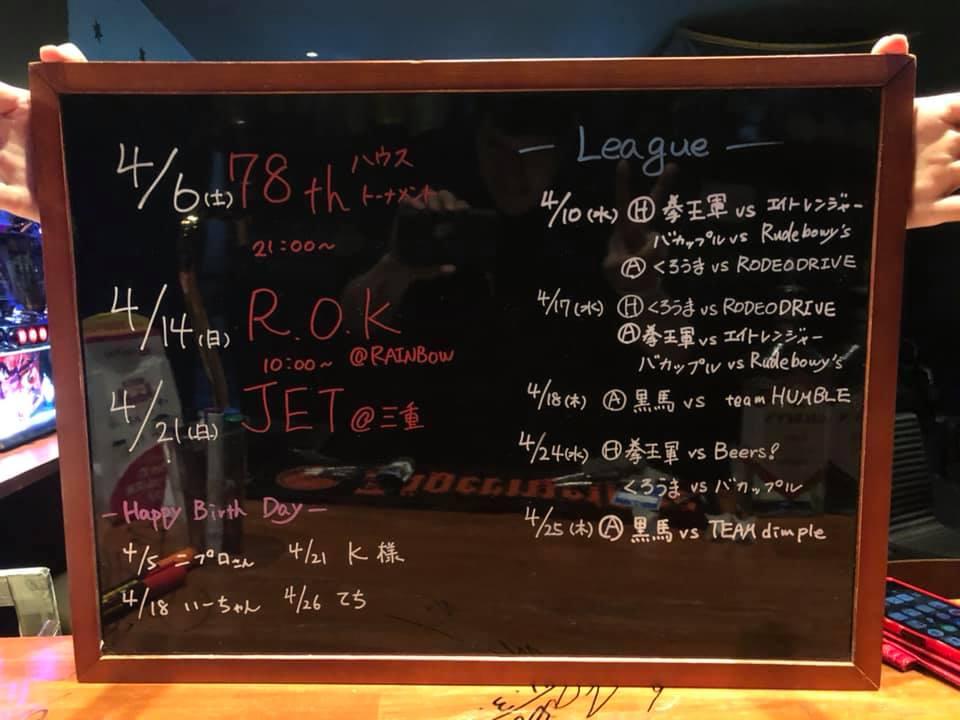 4/6(土) 78th ハウス
トーナメント
21:00~
4/14(日) R.O.K
10:00~ @RAINBOW
4/21(日) JET @三重
-Happy Birth Day-
4/5 ニプロさん 4/21 K様
4/18 いーちゃん 4/26 てち
- League -
4/10(水) Ⓗ 拳王軍 vs エイトレンジャー
バカップル vs Rudebowy's
Ⓐ くろうま vs RODEODRIVE
4/17(水) Ⓗ くろうま vs RODEODRIVE
Ⓐ 拳王軍 vs エイトレンジャー
バカップル vs Rudebowy's
4/18(木) Ⓐ 黒馬 vs team HUMBLE
4/24(水) Ⓗ 拳王軍 vs Beers?
くろうま vs バカップル
4/25(木) Ⓐ 黒馬 vs TEAM dimple